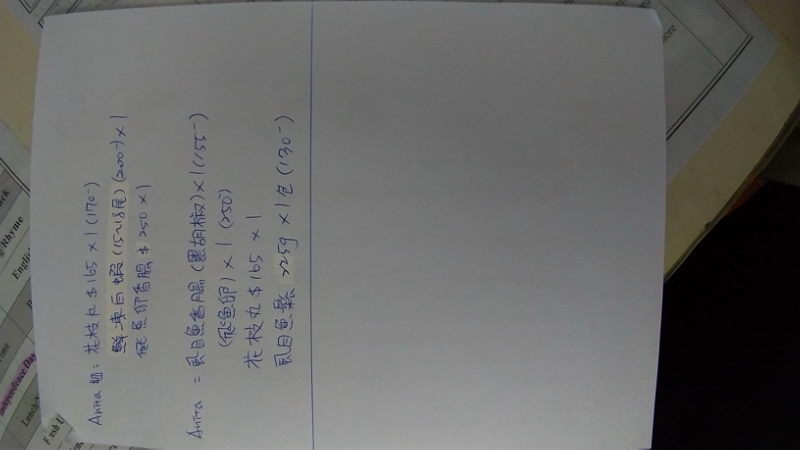 Anita 姐: 花枝丸 $165 x 1 (170-)
鮮凍白蝦 (15~18尾) (200-) x 1
飛魚卵香腸 $ 250 x 1
Anita = 虱目魚香腸 (黑胡椒) x 1 (155-)
(飛魚卵) x 1 (250)
花枝丸 $165 x 1
虱目魚鬆 225g x 1包 (130-)
Rhyme
English
Independence Day
Lunch
Fresh